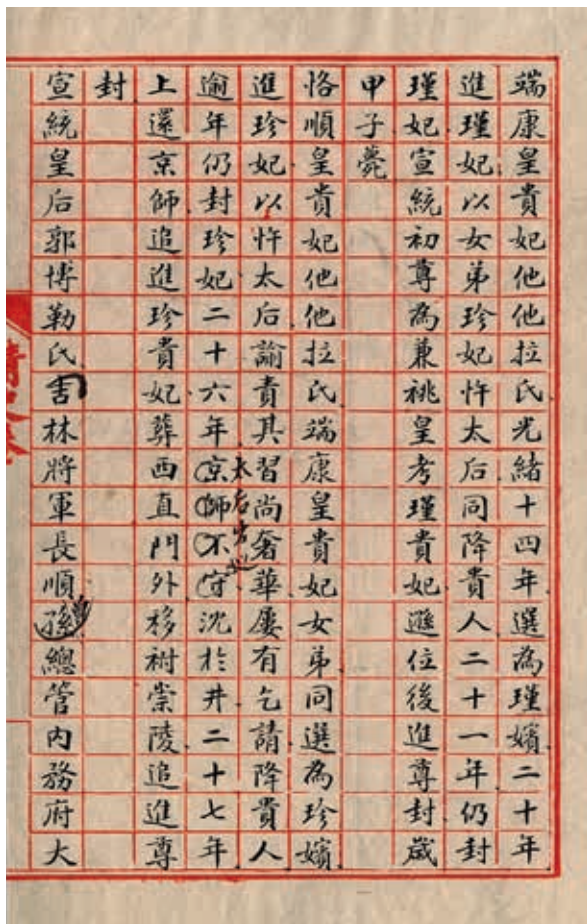 端康皇貴妃他他拉氏光緒十四年選為瑾嬪二十年
進瑾妃以女弟珍妃忤太后同降貴人二十一年仍封
瑾妃宣統初尊為兼祧皇考瑾貴妃遜位後進尊封歲
甲子薨
恪順皇貴妃他他拉氏端康皇貴妃女弟同選為珍嬪
進珍妃以忤太后諭責其習尚奢華屢有乞請降貴人
逾年仍封珍妃二十六年京師不守沈於井二十七年
太后出巡
上還京師追進珍貴妃葬西直門外移祔崇陵追進尊
封
宣統皇后郭博勒氏林將軍長順孫總管内務府大